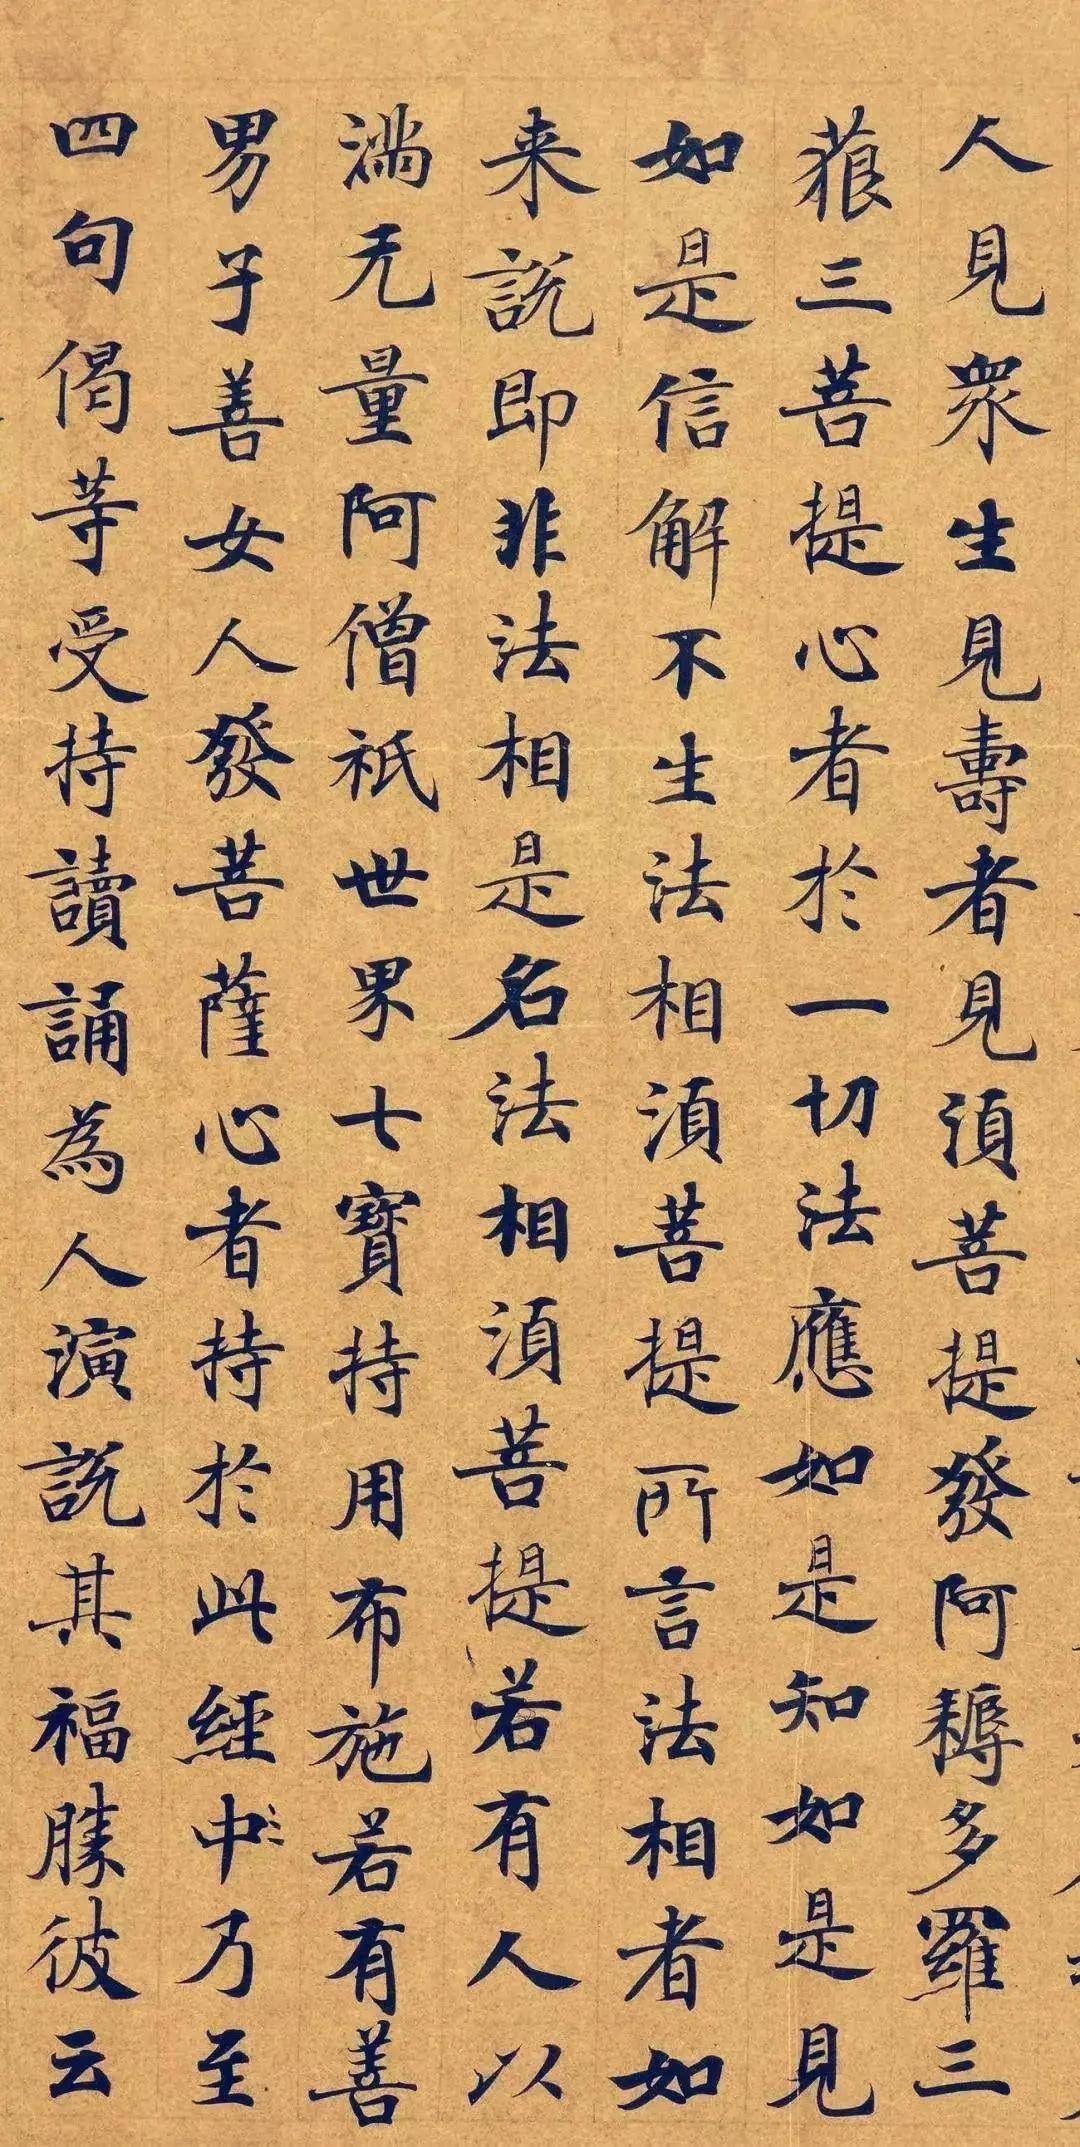 人見眾生見壽者見湏菩提發阿耨多羅三
藐三菩提心者於一切法應如是知如是見
如是信解不生法相湏菩提所言法相者如
来説即非法相是名法相湏菩提若有人以
滿无量阿僧祇世界七寶持用布施若有善
男子善女人發菩薩心者持於此經中乃至
四句偈等受持讀誦為人演説其福勝彼云